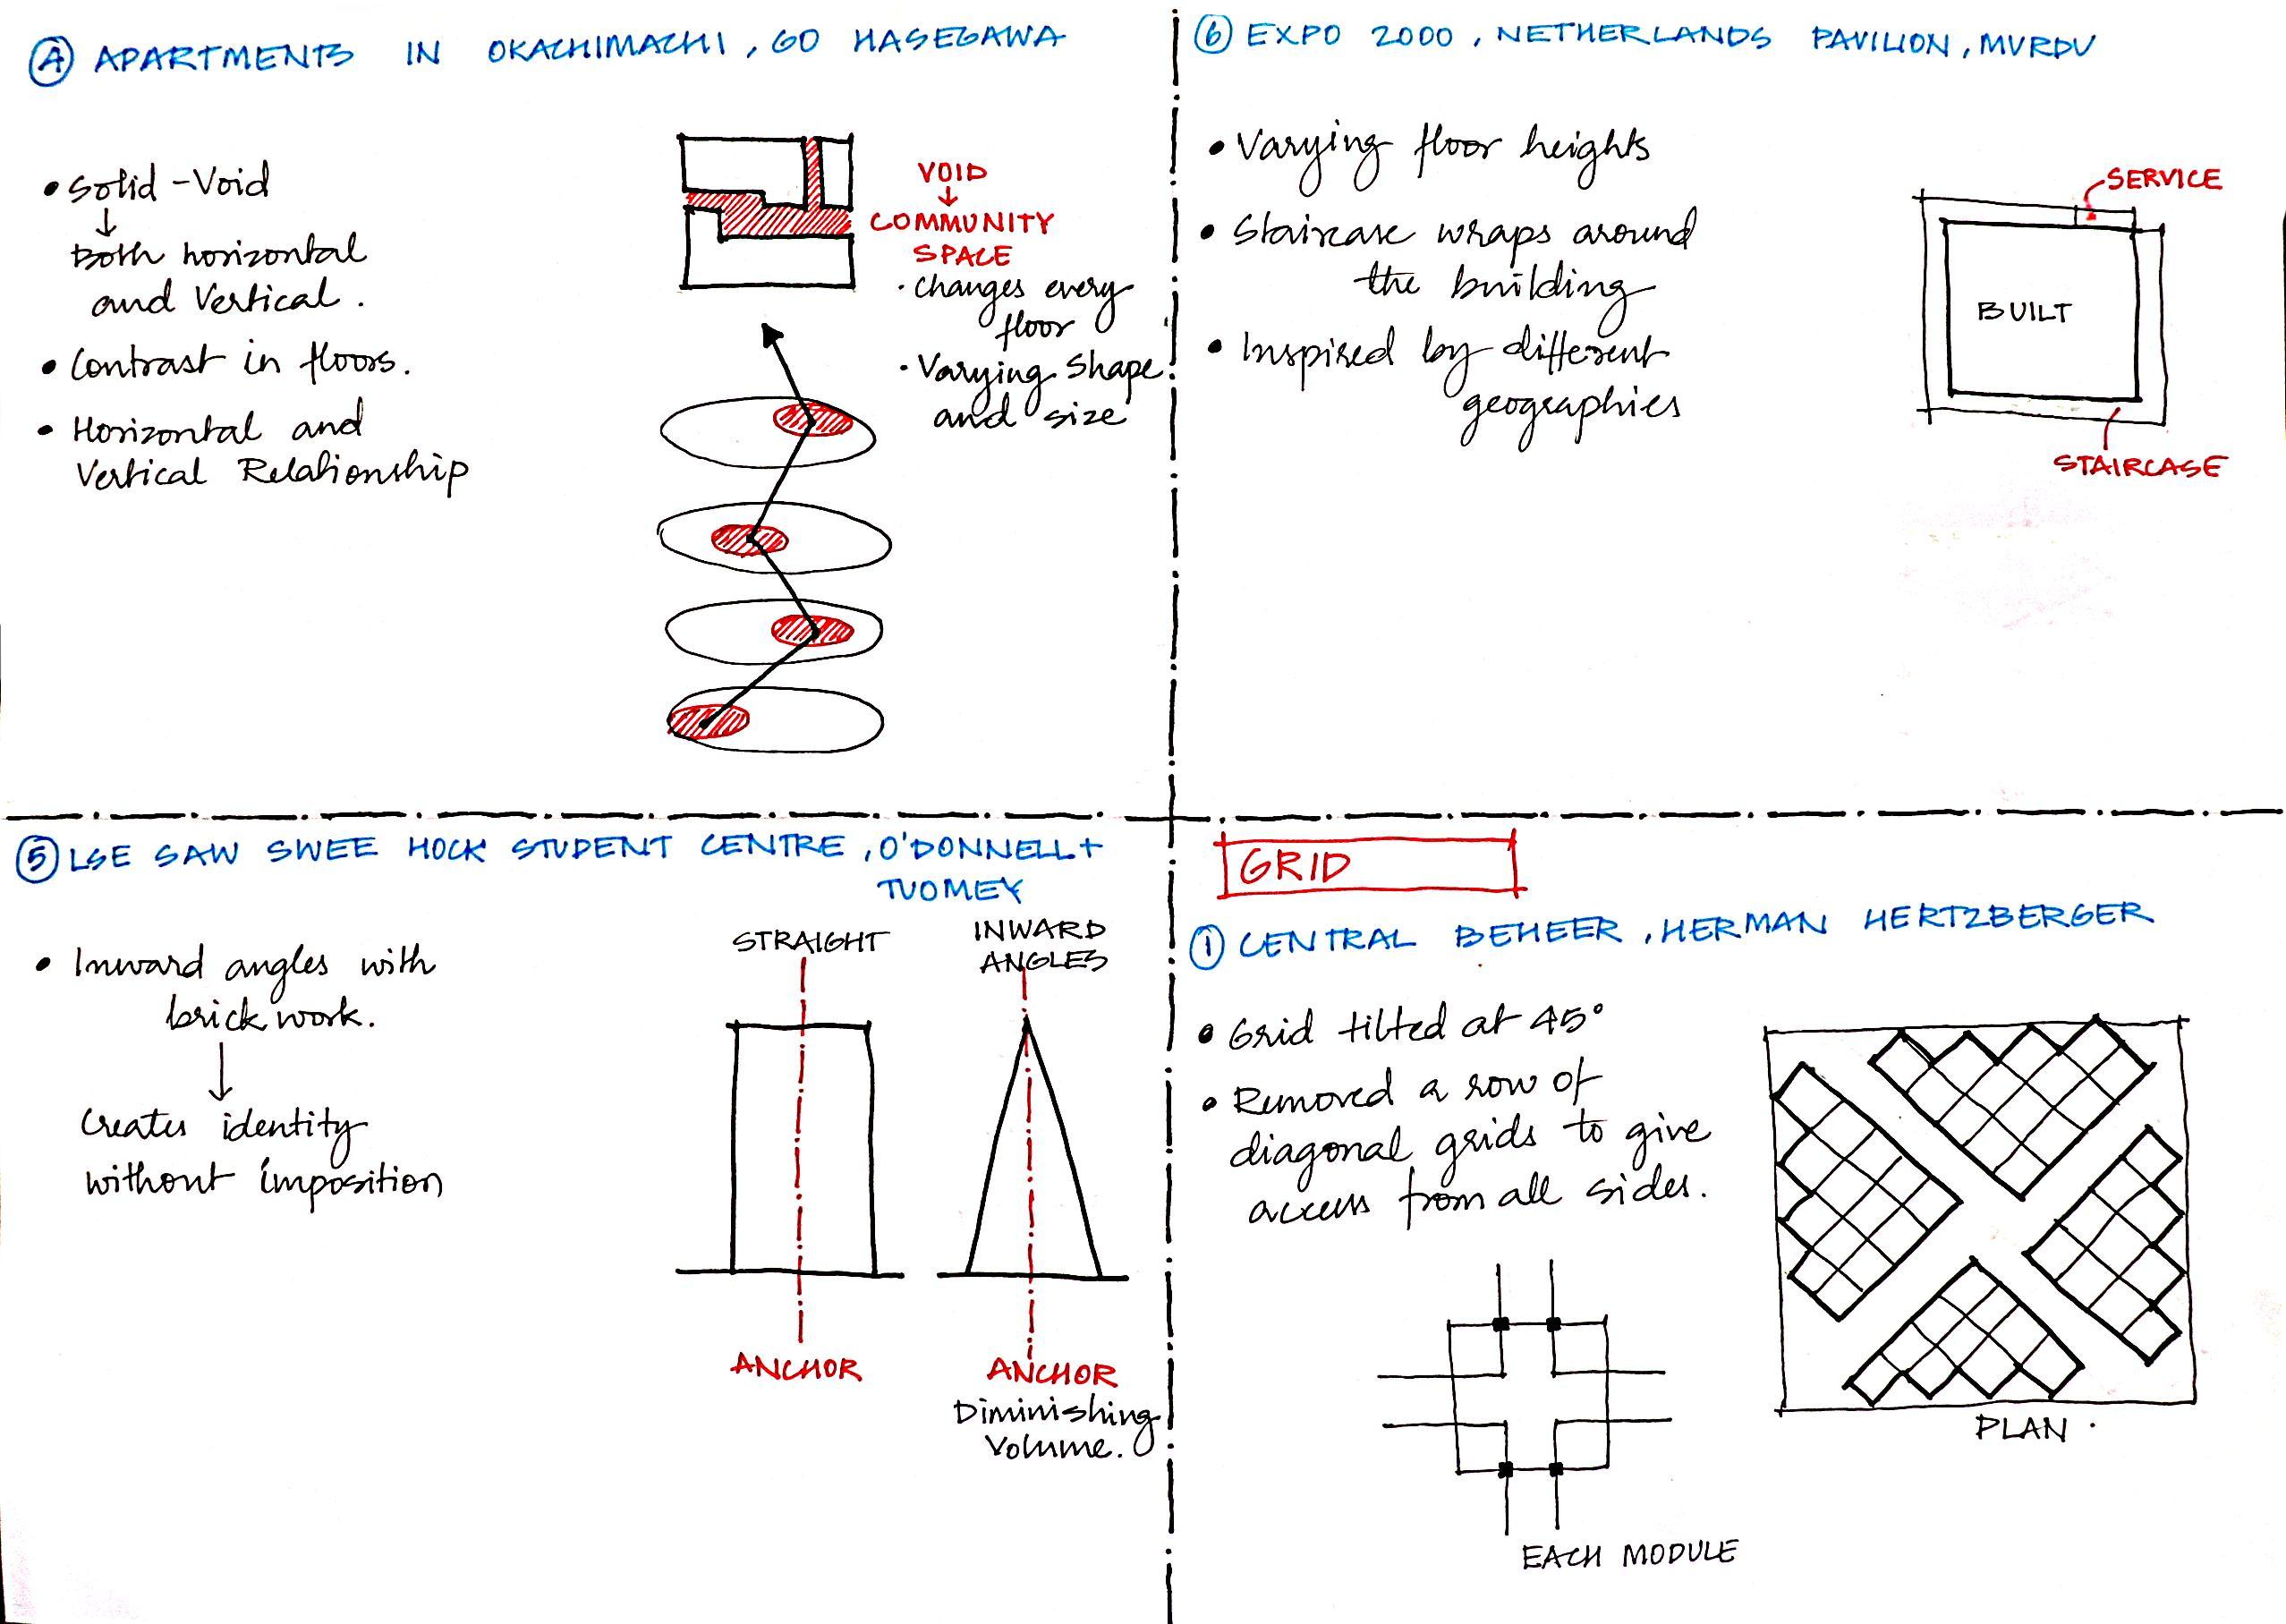 Ⓐ APARTMENTS IN OKACHIMACHI, GO HASEGAWA
• Solid - Void
↓
Both horizontal
and Vertical.
• Contrast in floors.
• Horizontal and
Vertical Relationship
VOID
↓
COMMUNITY
SPACE
• Changes every
floor
• Varying Shape
and size
⑥ EXPO 2000, NETHERLANDS PAVILION, MVRDV
• Varying floor heights
• Staircase wraps around
the building
• Inspired by different
geographies
SERVICE
BUILT
STAIRCASE
⑤ LSE SAW SWEE HOCK STUDENT CENTRE, O'DONNELL +
TUOMEY
• Inward angles with
brick work.
↓
Creates identity
without imposition
STRAIGHT
ANCHOR
INWARD
ANGLES
ANCHOR
Diminishing
Volume.
GRID
① CENTRAL BEHEER, HERMAN HERTZBERGER
• Grid tilted at 45°
• Removed a row of
diagonal grids to give
access from all sides.
EACH MODULE
PLAN.